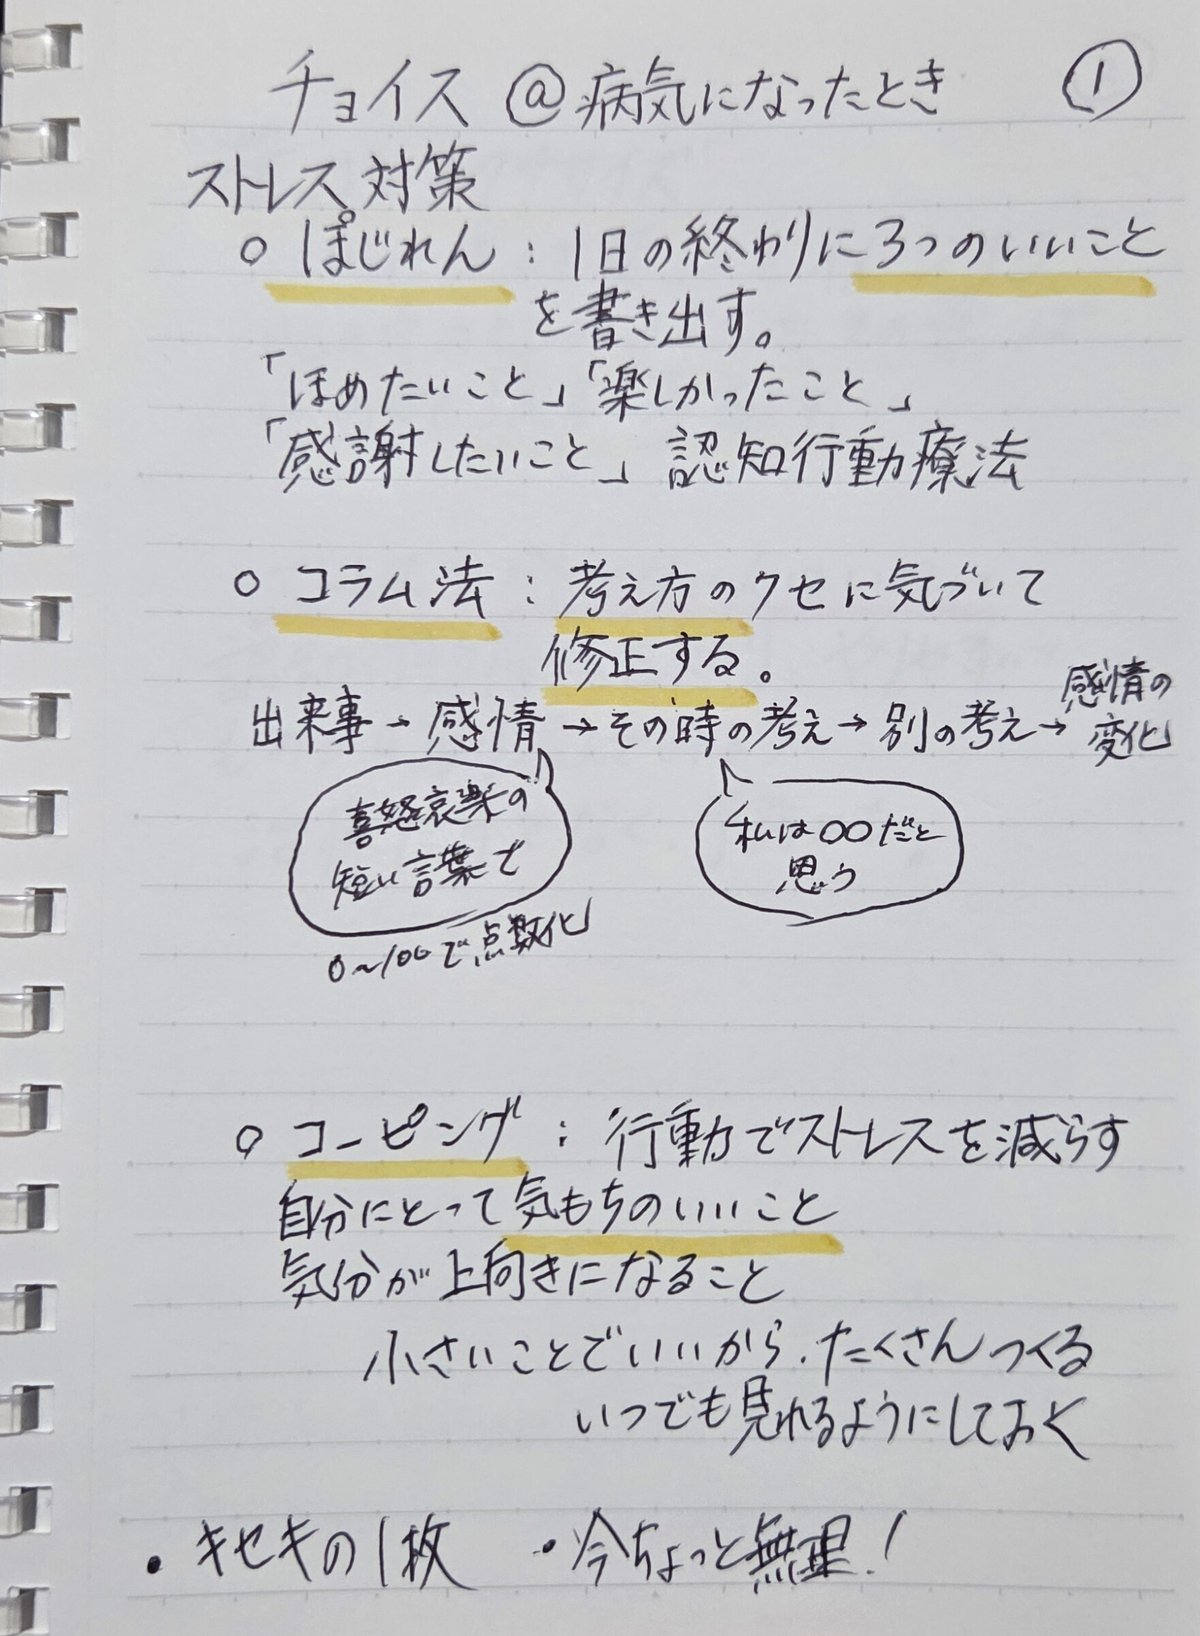 チョイス@病気になったとき ①
ストレス対策
○ ぽじれん：1日の終わりに3つのいいこと
を書き出す。
「ほめたいこと」「楽しかったこと」
「感謝したいこと」 認知行動療法
○ コラム法：考え方のクセに気づいて
修正する。
出来事→感情→その時の考え→別の考え→感情の変化
喜怒哀楽の
短い言葉で
0～100で点数化
私は〇〇だと
思う
○ コーピング：行動でストレスを減らす
自分にとって気もちのいいこと
気分が上向きになること
小さいことでいいから、たくさんつくる
いつでも見れるようにしておく
・キセキの1枚 ・今ちょっと無理！